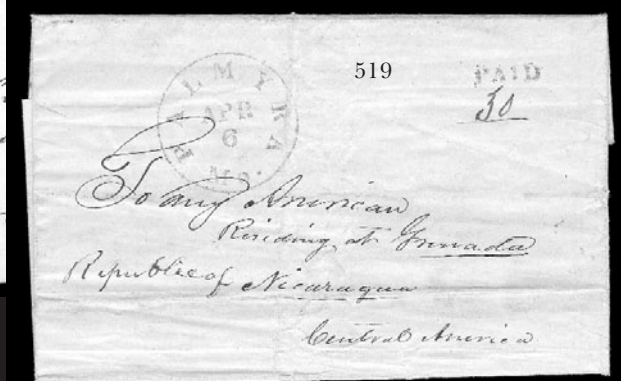 519
PALMYRA
APR
6
Mo.
PAID
30
To any American
Residing at Grenada
Republic of Nicaragua
Central America